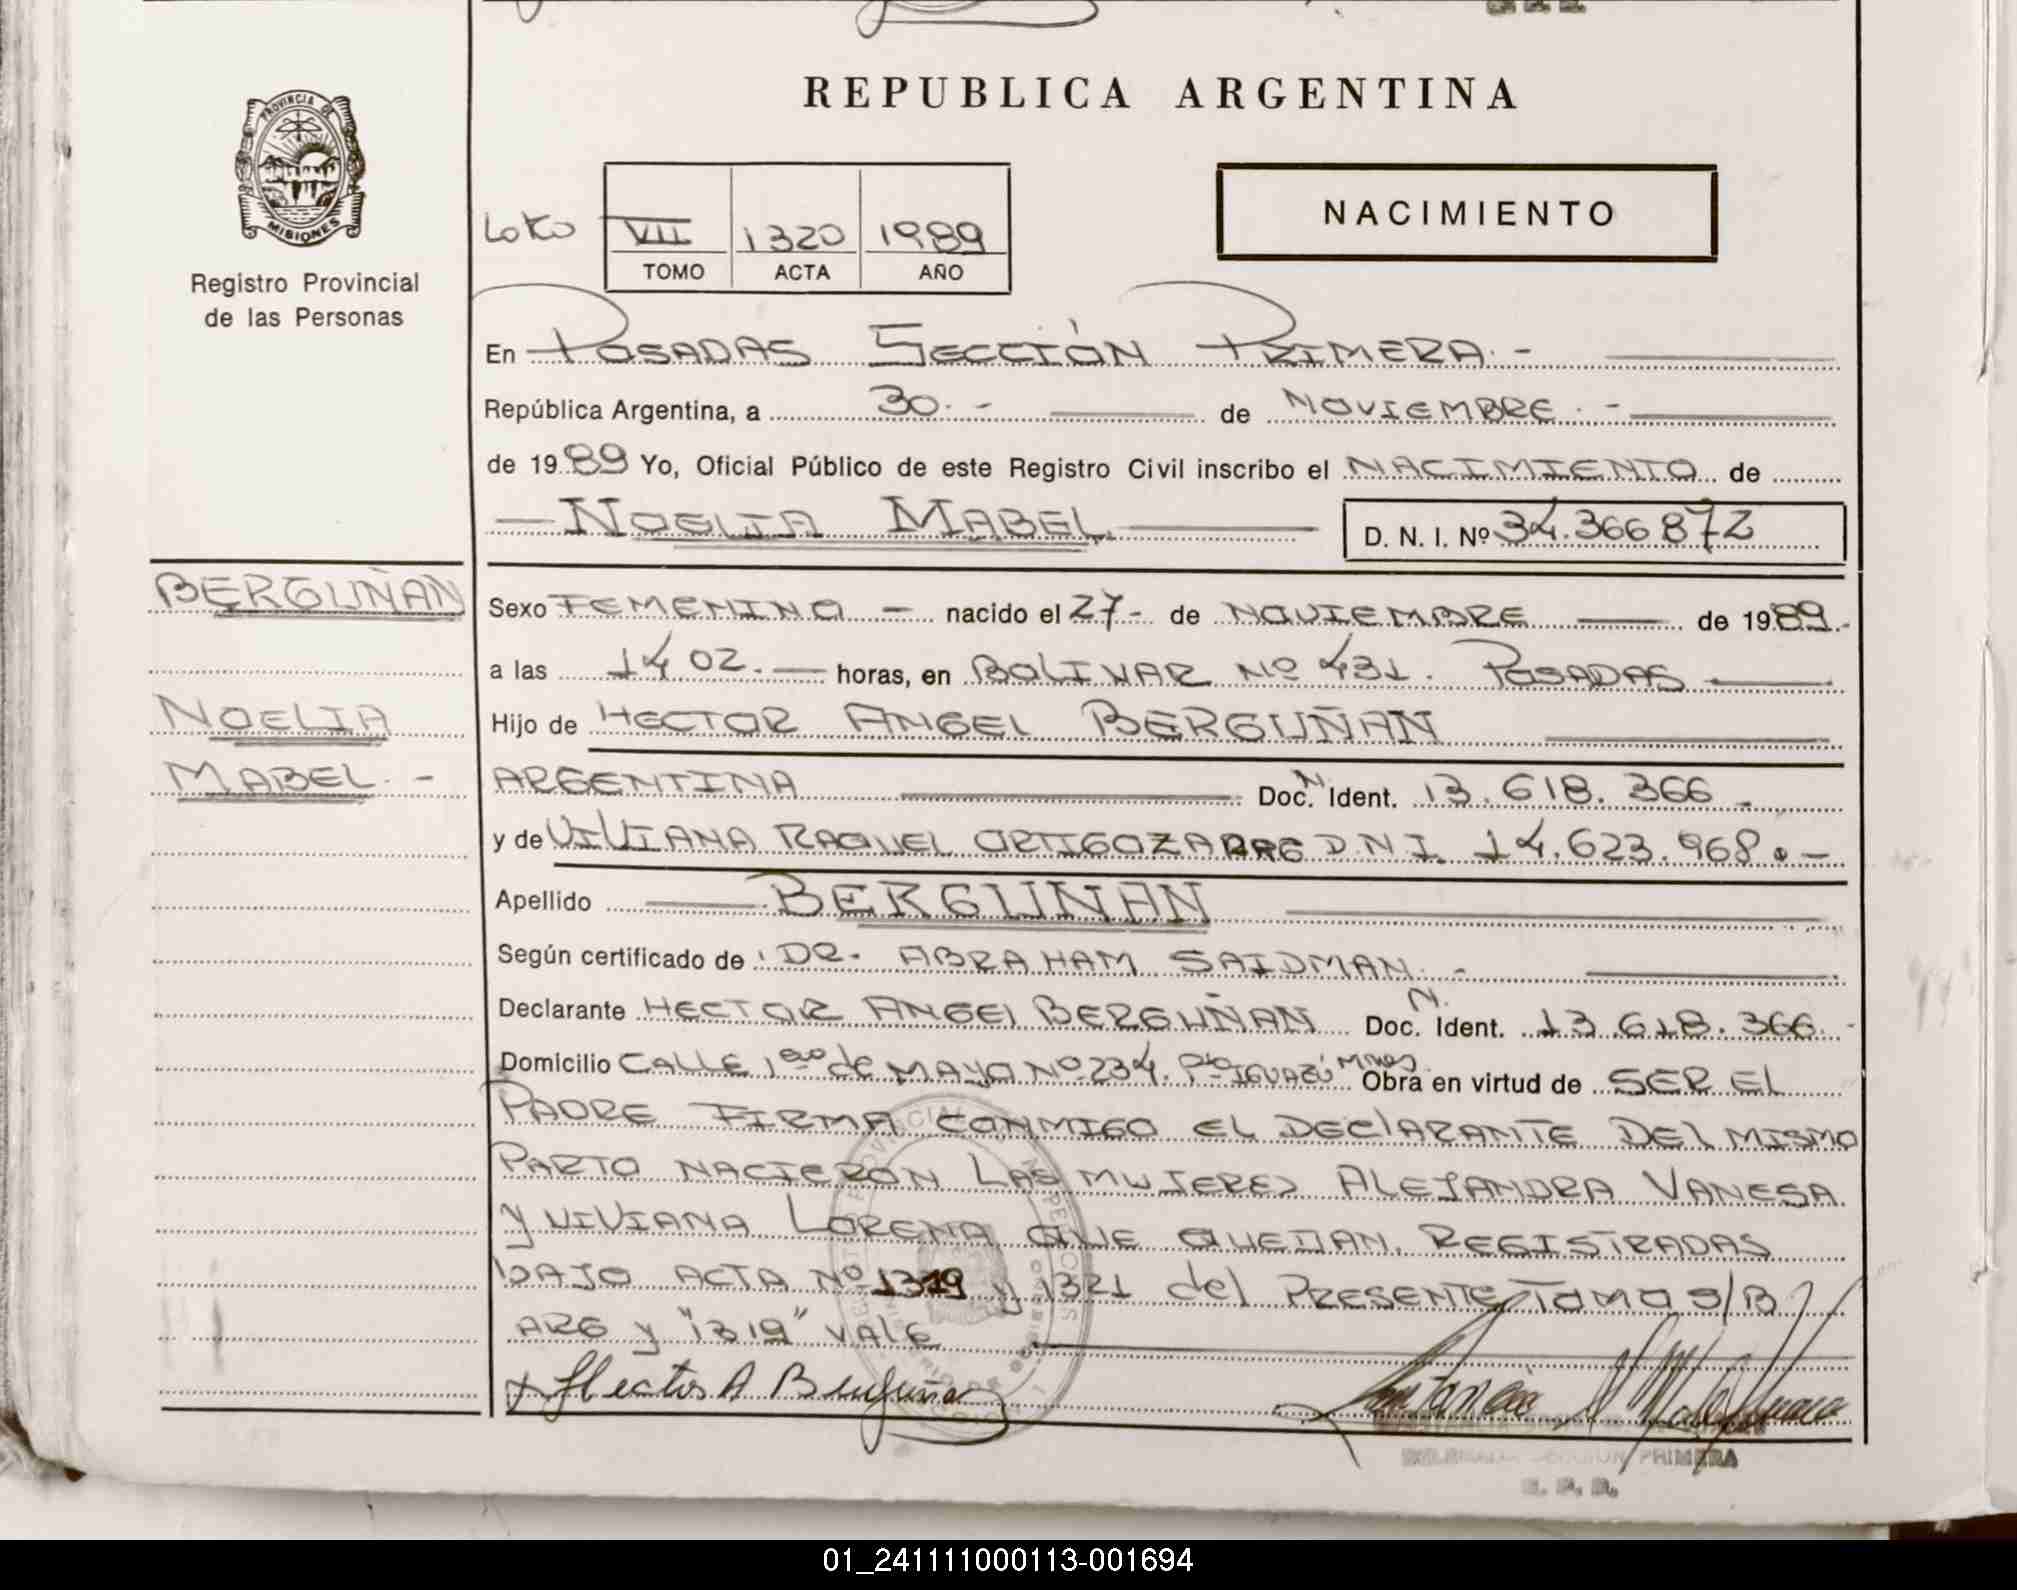 REPUBLICA ARGENTINA
PROVINCIA DE
MISIONES
Registro Provincial
de las Personas
NACIMIENTO
VII 1320 1989
TOMO ACTA AÑO
En POSADAS SECCIÓN PRIMERA.-
República Argentina, a 30.- de NOVIEMBRE.-
de 1989 Yo, Oficial Público de este Registro Civil inscribo el NACIMIENTO de
NOELIA MABEL D. N. I. Nº 34.366872
BERGUÑAN
NOELIA
MABEL.-
Sexo FEMENINO - nacido el 27- de NOVIEMBRE de 1989.-
a las 14 02. horas, en BOLIVAR Nº 431. POSADAS
Hijo de HECTOR ANGEL BERGUÑAN
ARGENTINA Doc. N Ident. 13.618.366.
y de VIVIANA RAQUEL ORTIGOZA ARG D.N.I. 14.623.968.-
Apellido BERGUNAN
Según certificado de DR. ABRAHAM SAIDMAN.-
Declarante HECTOR ANGEl BERGUÑAN Doc. N. Ident. 13.618.366.-
Domicilio CALLE 1ero de MAYO Nº 234. Pto IGUAZÚ Mnes. Obra en virtud de SER EL
PADRE FIRMA CONMIGO EL DEClARANTE DEl MISMO
PARTO NACIERON LAS MUJERES ALEJANDRA VANESA
y VIVIANA LORENA QUE QUEDAN REGISTRADAS
bAJO ACTA Nº 1319 y 1321 del PRESENTE TOMO S/B
ARG y "1319" VALE
Hector A Berguñan
PRIMERA
01_241111000113-001694